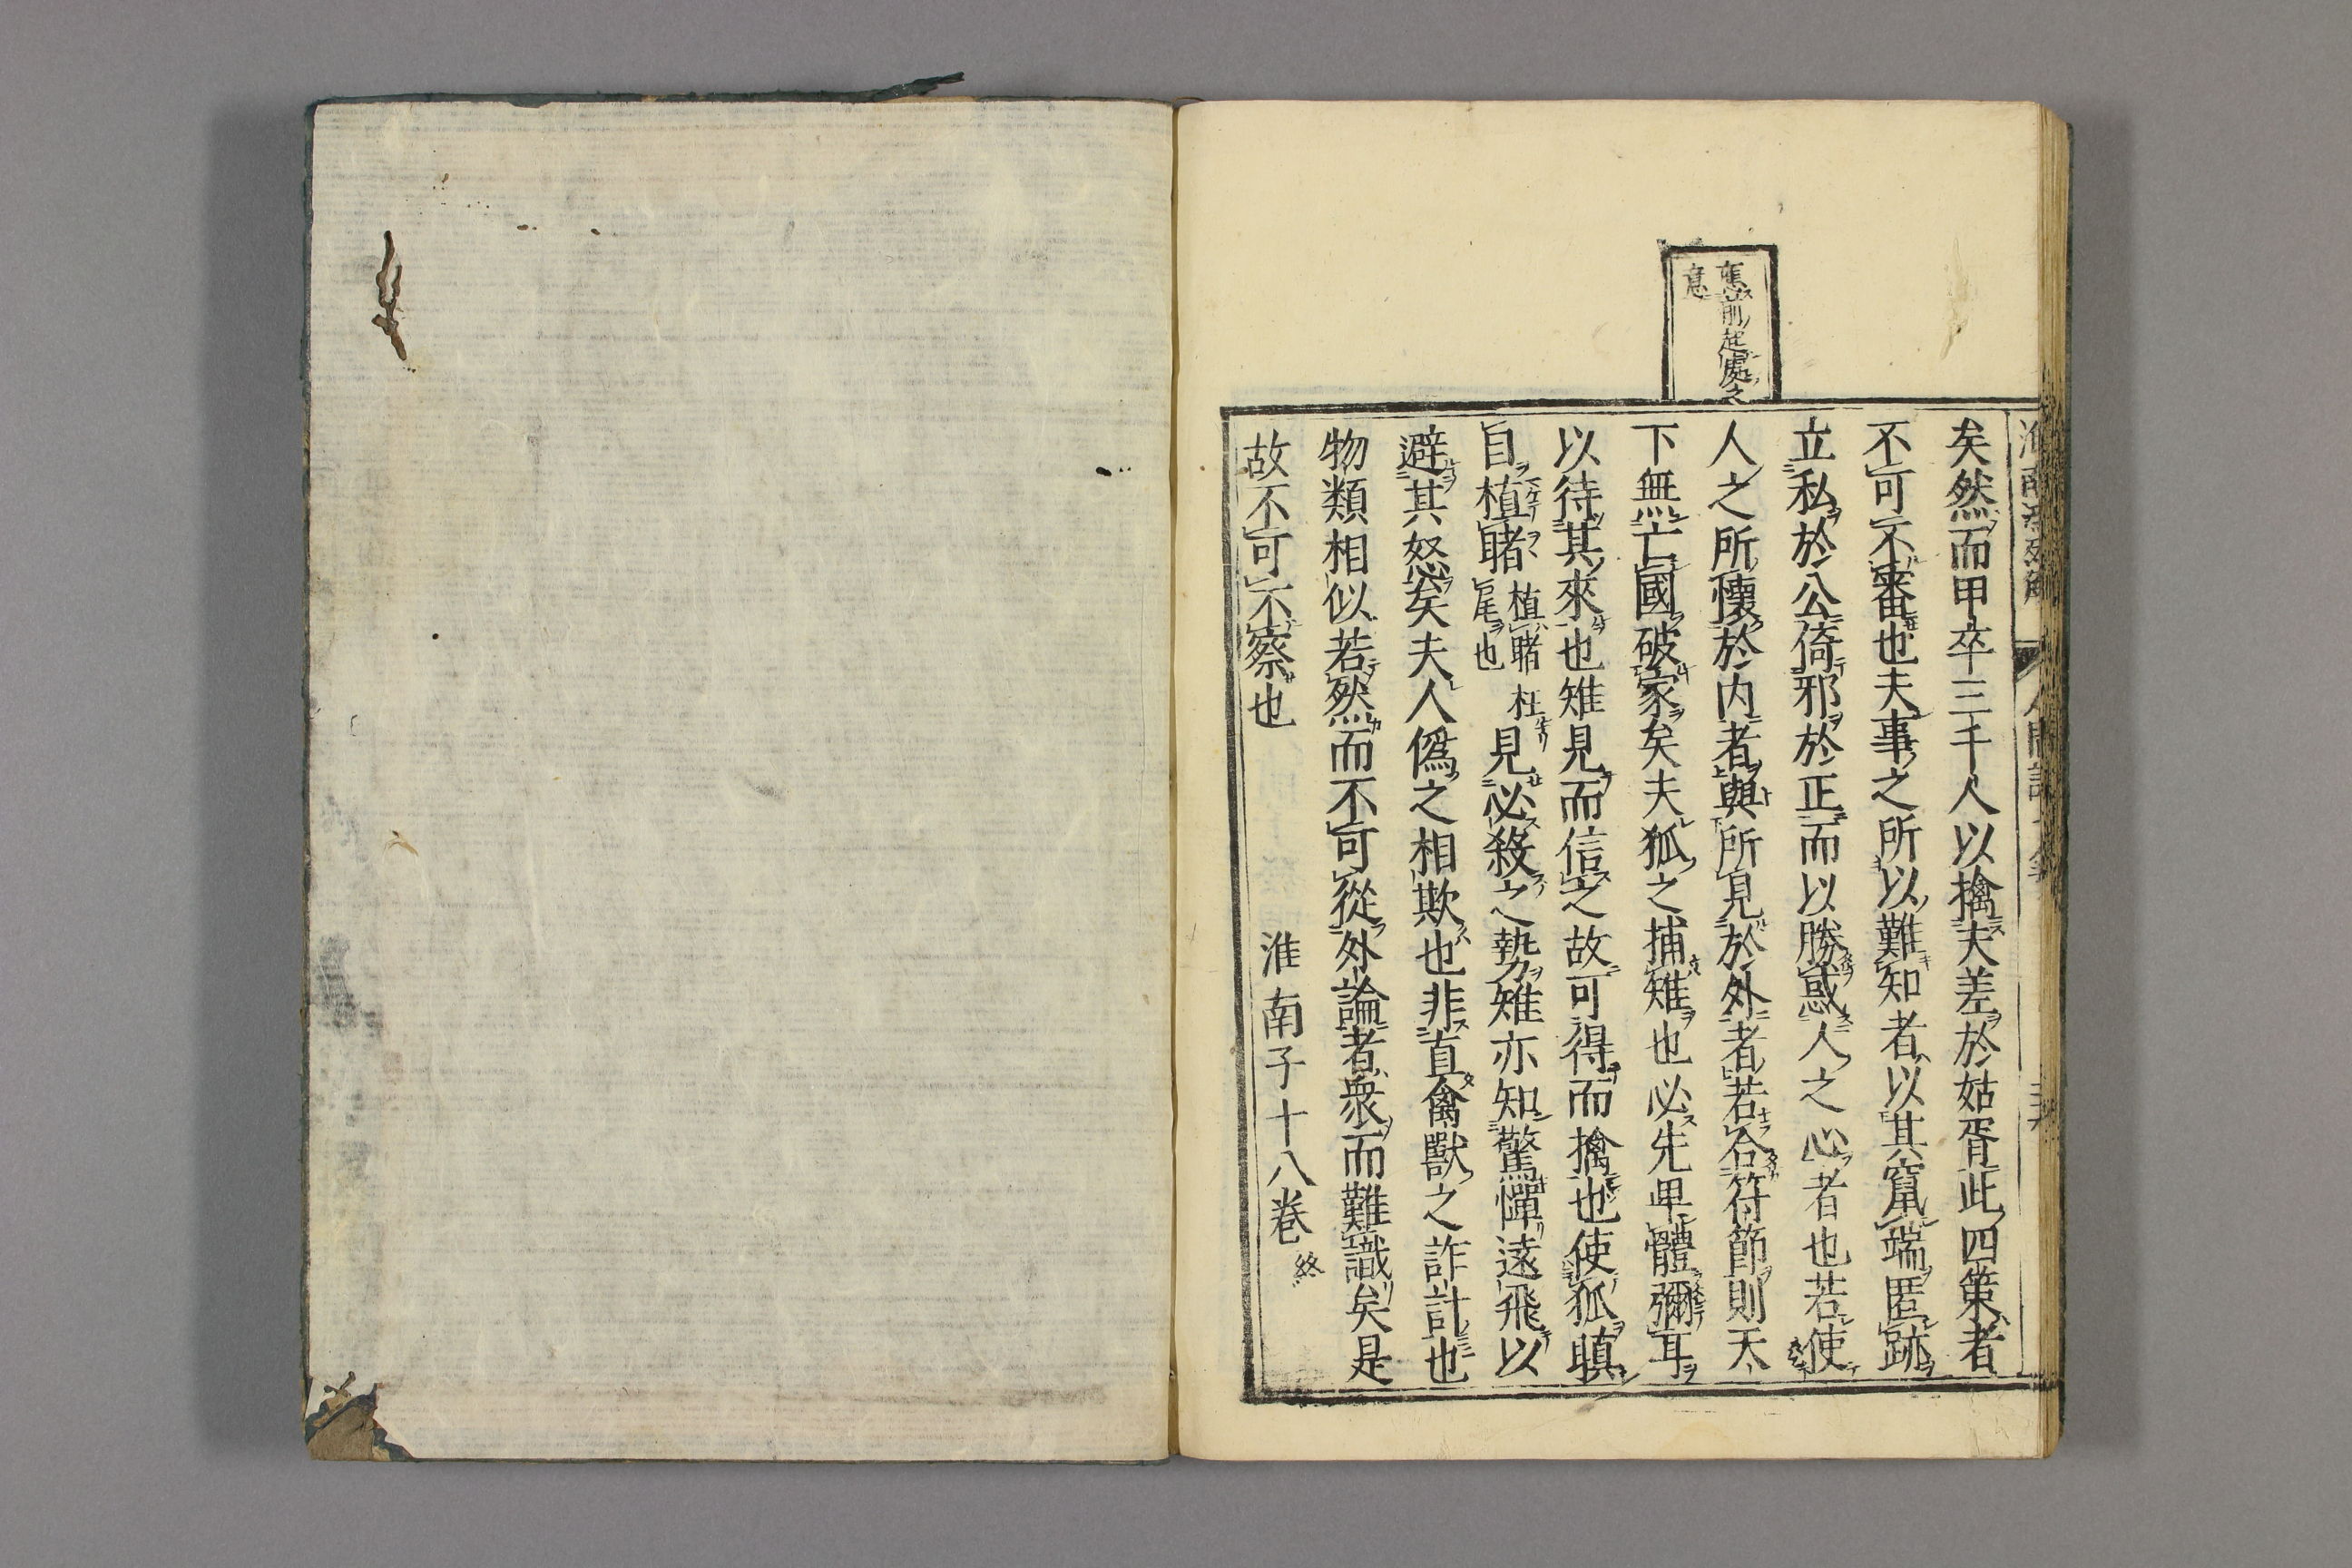 應前起處之
意
矣然而甲卒三千人以擒夫差於姑胥此四策者
不可不審也夫事之所以難知者以其竄端匿跡
立私於公倚邪於正而以勝惑人之心者也若使
人之所懷於内者與所見於外者若合符節則天
下無亡國破家矣夫狐之捕雉也必先卑體彌耳
以待其來也雉見而信之故可得而擒也使狐瞋
目植睹植睹柱尾也見必殺之勢雉亦知驚憚遠飛以
避其怒矣夫人僞之相欺也非直禽獸之詐計也
物類相似若然而不可從外論者衆而難識矣是
故不可不察也
淮南子十八巻終